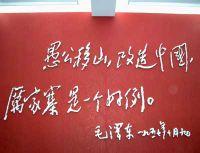 愚公移山,改造中國,
厲家寨是一个好例。
毛澤東 一九五七年十月九日